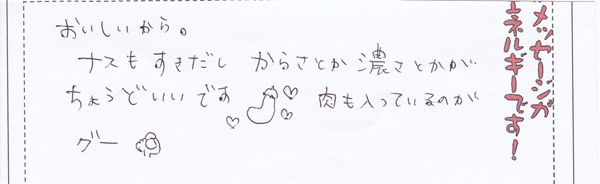 おいしいから。
ナスもすきだし からさとか濃さとかが
ちょうどいいです 肉も入っているのが
グー
メッセージが
エネルギーです!